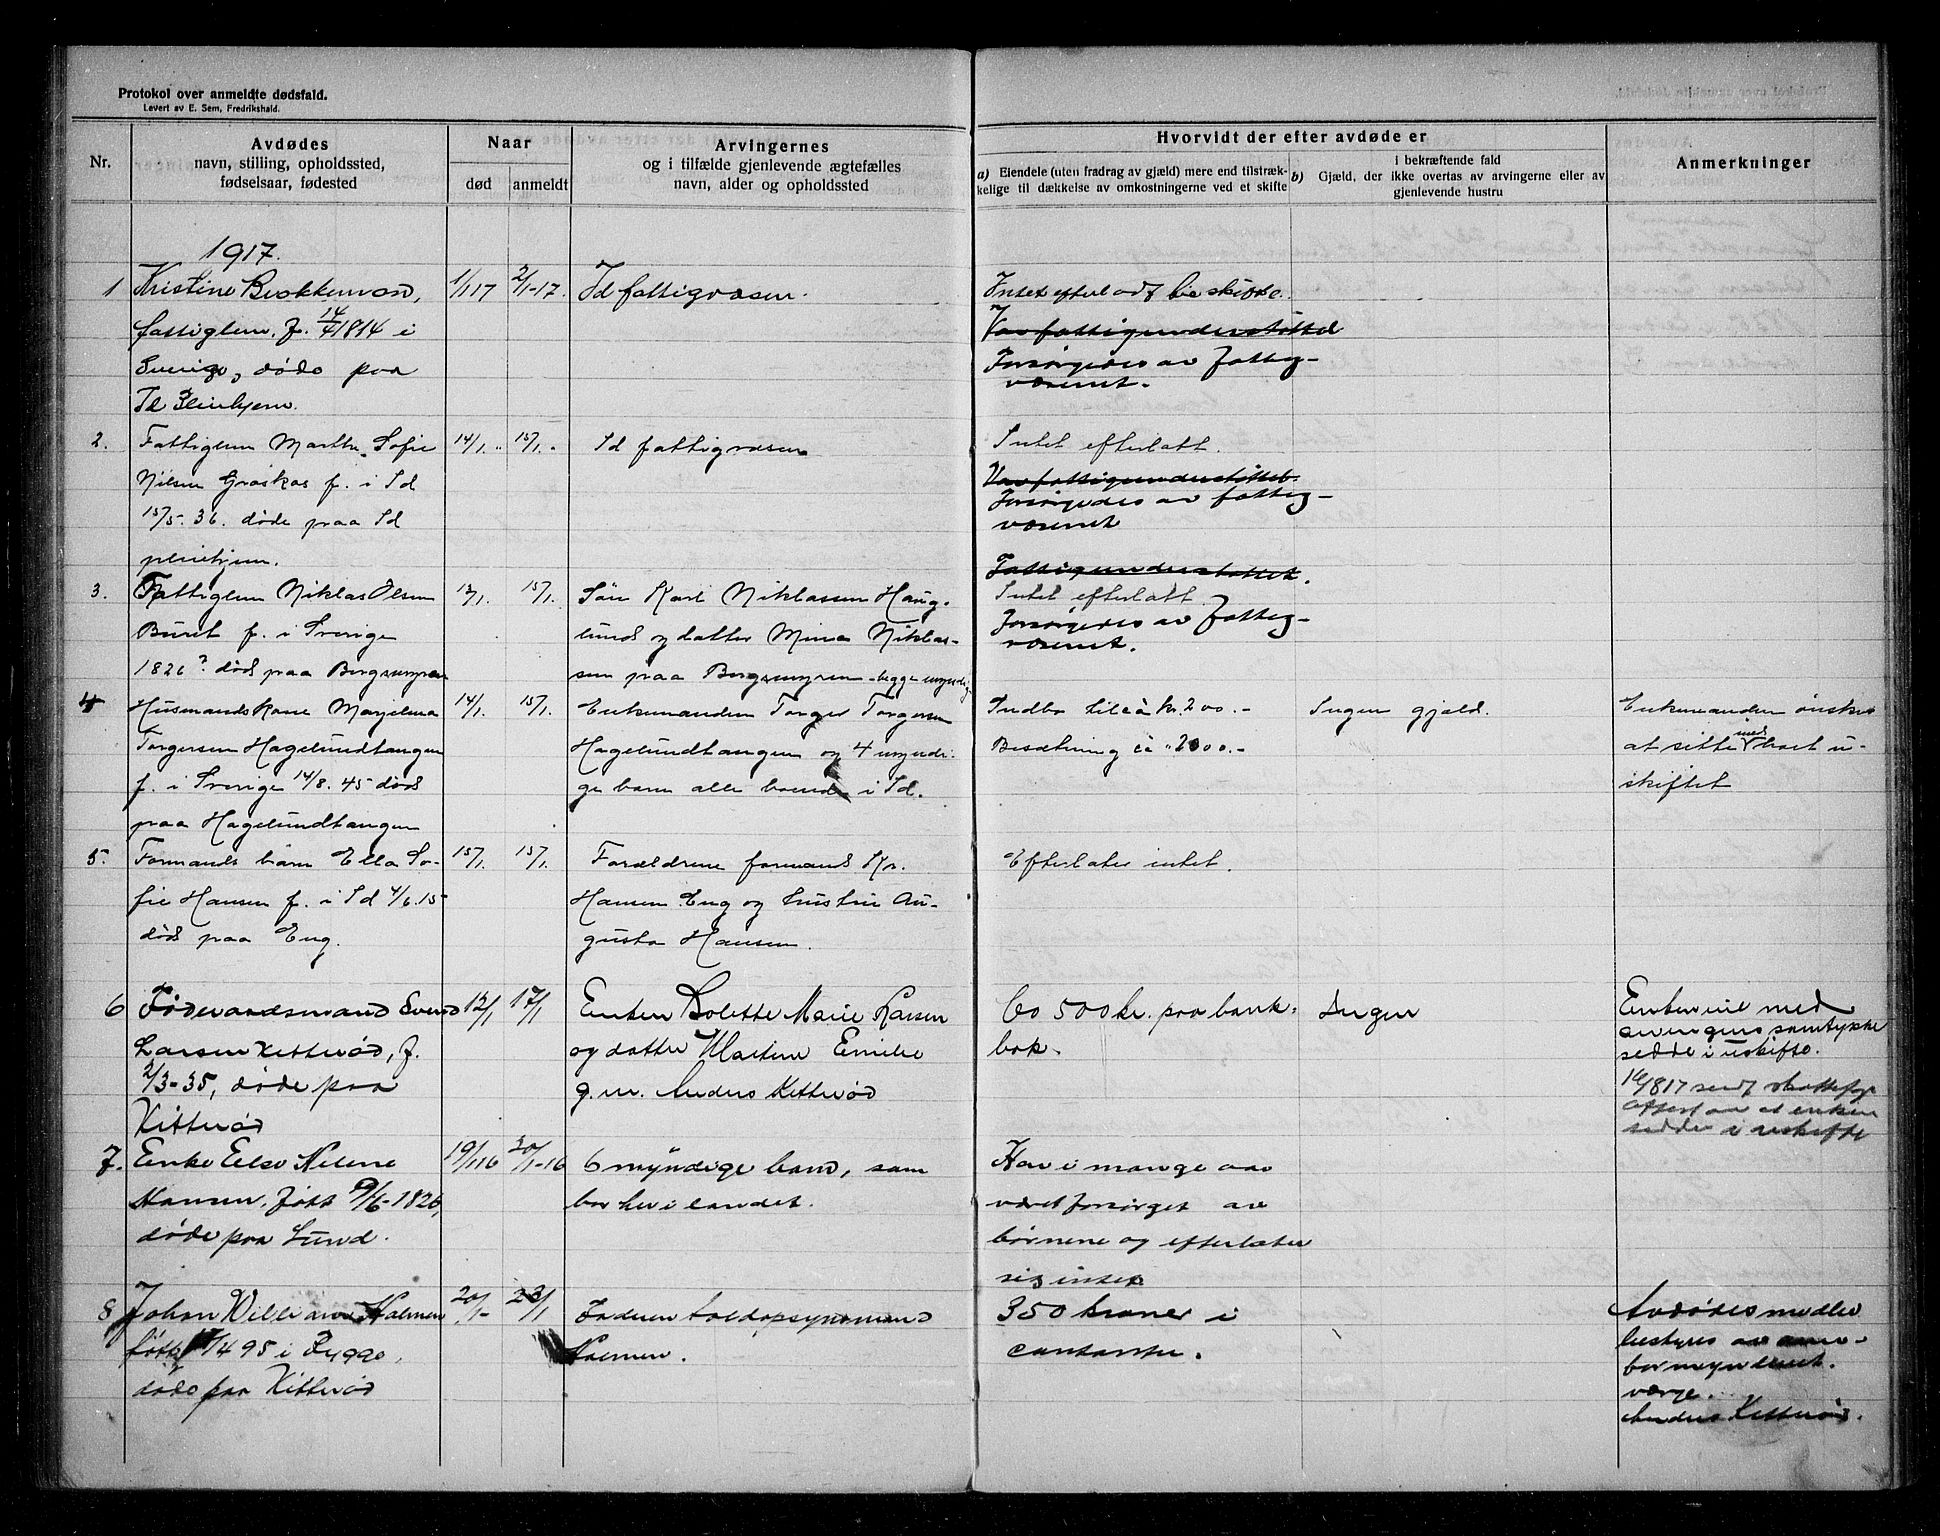 Protokol over anmeldte dødsfald.
Levert av E. Sem, Fredrikshald.
Nr.
Avdødes
navn, stilling, opholdssted,
fødselsaar, fødested
Naar
død
anmeldt
Arvingernes
og i tilfælde gjenlevende ægtefælles
navn, alder og opholdssted
Hvorvidt der efter avdøde er
a) Eiendele (uten fradrag av gjæld) mere end tilstræk-
kelige til dækkelse av omkostningerne ved et skifte
b)
i bekræftende fald
Gjæld, der ikke overtas av arvingerne eller av
gjenlevende hustru
Anmerkninger
1917.
1
Kristine
fattiglem, f. 14/4 1814 i
Sverige, døde paa
Id Pleiehjem.
1/1 17
2/1-17.
Id fattigvæsen.
Intet efterladt
Var fattigunderstøttet
Forsørgedes av fattig-
væsenet.
2.
Fattiglem Marthe Sofie
Nilsen Graskas f. i Id
15/5. 36. døde paa Id
pleiehjem.
14/1.
15/1.
Id fattigvæsen
Intet efterlatt.
Var fattigunderstøttet.
Forsørgedes av fattig-
væsenet
3.
Fattiglem Niklas Olsen
Buret f. i Sverige
1826? død paa Bergsmyren
12/1.
15/1.
Søn Karl Niklassen Haug-
lund og datter Mina Niklas-
sen paa Bergsmyren - begge myndig
Fattigunderstøttet.
Intet efterlatt
Forsørgedes av fattig-
væsenet.
4
Husmandskone
Torgersen Hagelundtangen
f. i Sverige 14/8. 45 død
paa Hagelundtangen
14/1.
15/1.
Enkemanden Torger Torgersen
Hagelundtangen og 4 myndi-
ge barn alle boende i Id.
Indbo til ca kr. 200.-
Besætning ca " 2000.-
Ingen gjæld.
Enkemanden ønsker
at sitte med boet u-
skiftet
5.
Formands barn Ella So-
fie Hansen f. i Id 4/6. 15
død paa Eng.
15/1.
15/1.
Forældrene formand Kr.
Hansen Eng og hustru Au-
gusta Hansen.
Efterlater intet.
6
Føderaadsmand Svend
Larsen Kitterød, f.
2/3-35, døde paa
Kitterød
12/1
17/1
Enken Bolette Marie Larsen
og datter Martine Emilie
g. m. Anders Kitterød
Co 500 kr. paa bank-
bok.
Ingen
Enken vil med
arvingens samtykke
sidde i uskifte.
16/8 17 sendt skattefogd
attest om at enken
sidder i uskifte
7.
Enke Else Helene
Hansen, født 9/6-1826,
døde paa Lund.
19/1 16
20/1-16
6 myndige barn, som
bor her i landet.
Har i mange aar
været forsørget av
børnene og efterlater
sig intet
8
Johan William Holmen
født 1/4 95 i Rygge,
døde paa Kitterød
20/1-
23/1
Faderen toldopsynsmand
Holmen.
350 kroner i
contanter.
Avdødes midler
bestyres av over-
formynderiet.
værge.
Anders Kitterød.